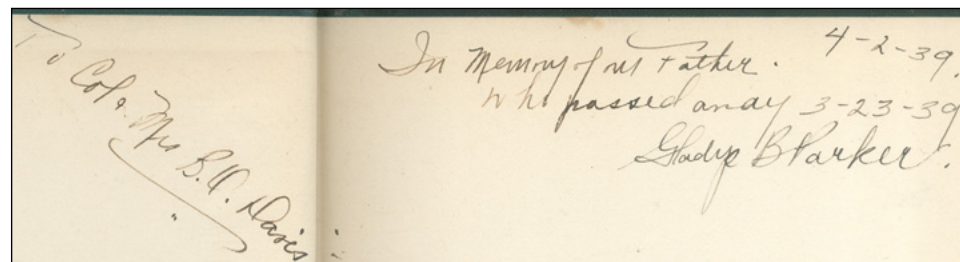 To Col & Mrs B.O. Davis
4-2-39.
In Memory of my Father.
who passed away 3-23-39
Gladys B Parker.